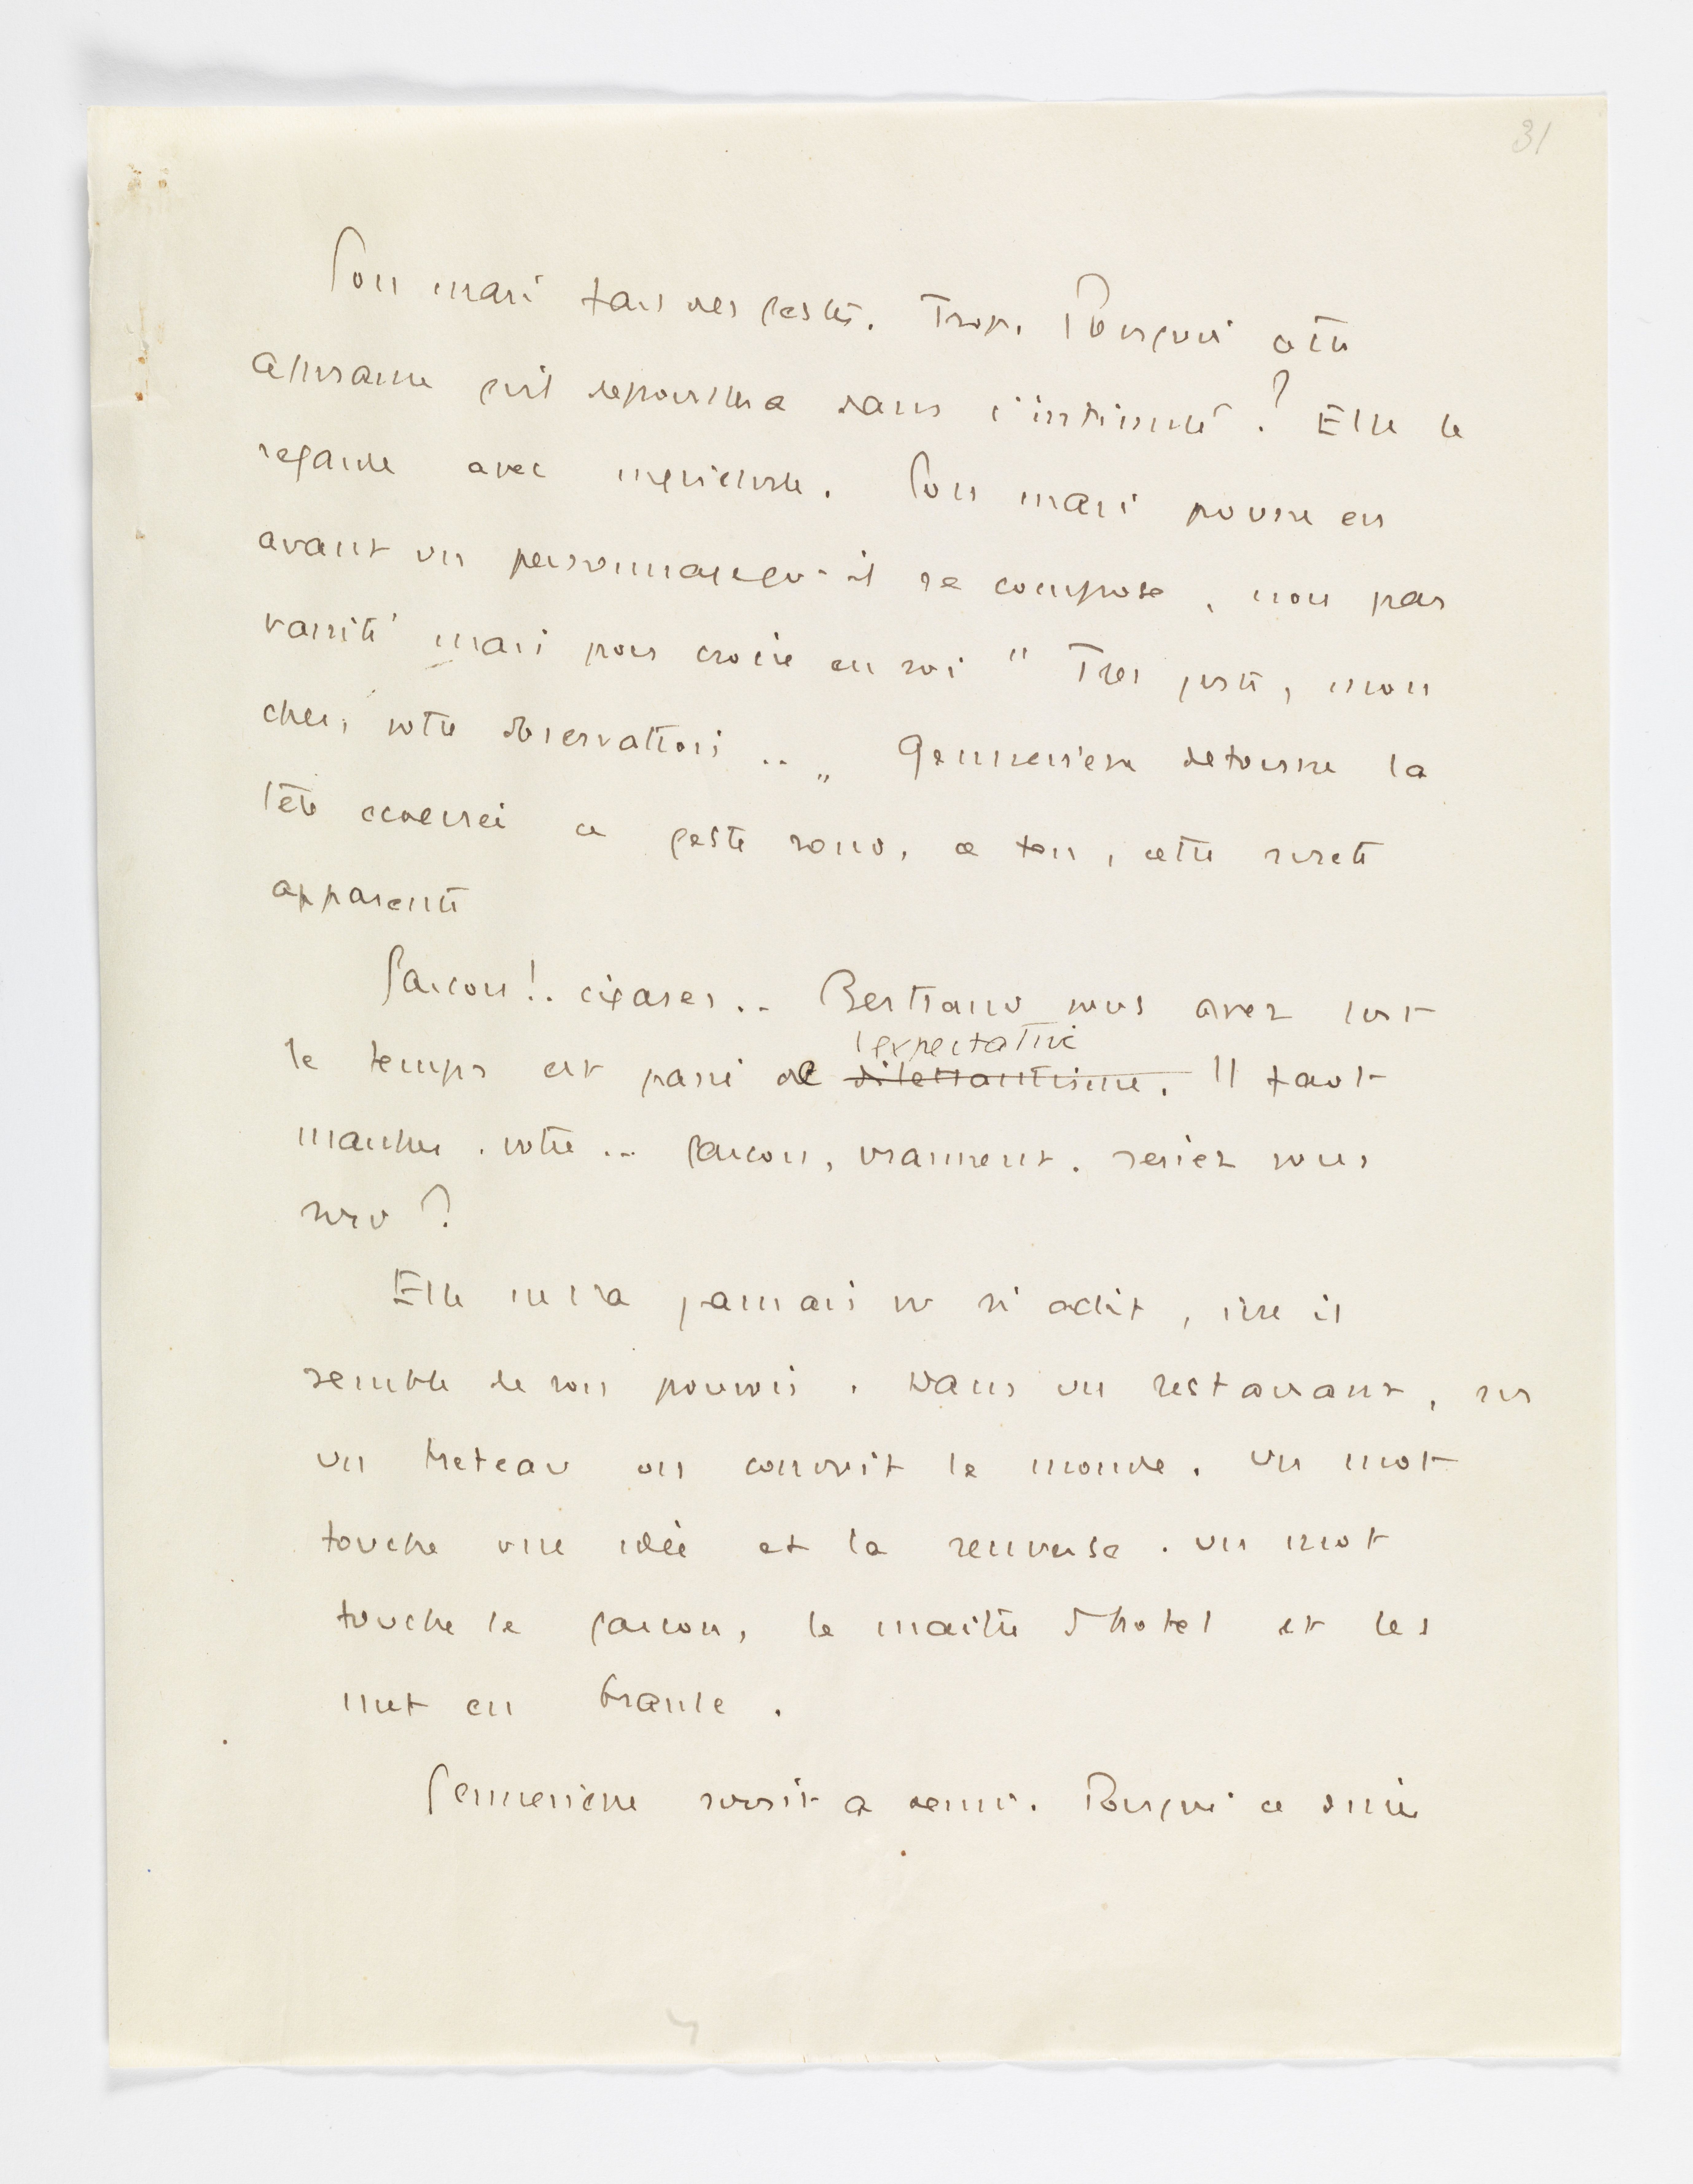 31
Son mari fait des gestes. Trop. Pourquoi cette
assurance qu'il depouillera dans l'intimité ? Elle le
regarde avec inquietude. Son mari pousse en
avant un personnage qu'il se compose, non par
vanité mais pour croire en soi " Tres juste, mon
cher, votre observation .. " Genevieve detourne la
tête ecoeurée ce geste rond, ce ton, cette sureté
apparente
Garcon !. cigares .. Bertrand vous avez tort
lexpectative
le temps est passé de dilettantisme. Il faut
marcher. votre ... garcon, vraiment. seriez vous
sourd ?
Elle ne l'a jamais vu si actif, ivre il
semble de son pouvoir. Dans un restaurant, sur
un treteau on conduit le monde. Un mot
touche une idée et la renverse. Un mot
touche le garcon, le maitre d'hotel et les
met en branle.
Genevieve sourit a demi. Pourquoi ce diner